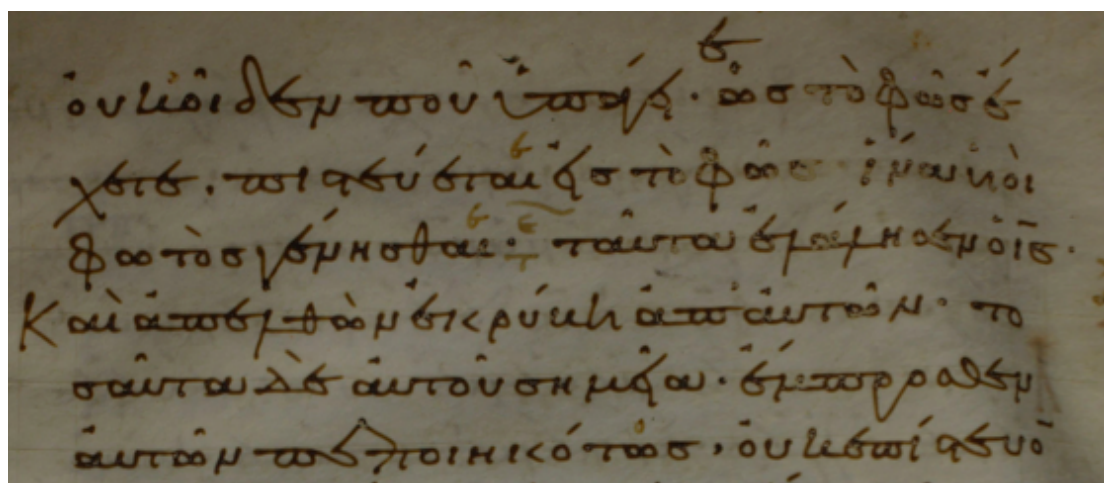 οὐκ οἶδεν ποῦ ὑπάγει· ὡς τὸ φῶς ἔ
χετε. πιστεύεται εἰς τὸ φῶς ἵνα υἱοὶ
φωτὸς γένησθαι· ταῦτα ἐλάλησεν ὁ ις̄·
Καὶ ἀπελθὼν ἐκρύβη ἀπ' αὐτῶν· το
σαῦτα δὲ αὐτοῦ σημεῖα· ἔμπροσθεν
αὐτῶν πεποιηκότως· οὐκ ἐπίστευο̄